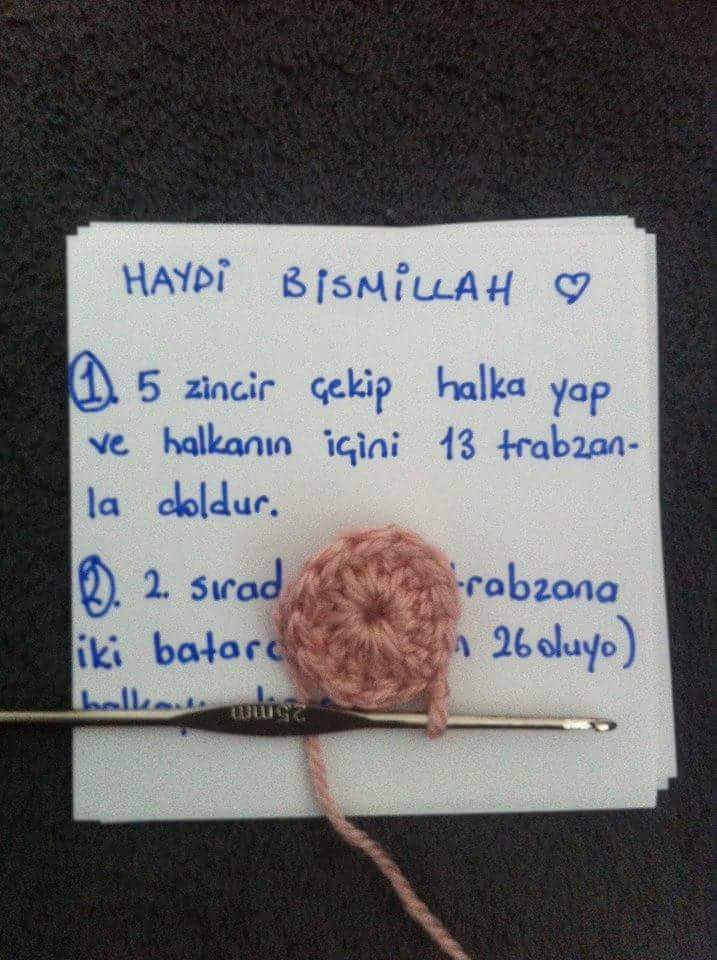 HAYDİ BİSMİLLAH ♡
1. 5 zincir çekip halka yap
ve halkanın içini 13 trabzan-
la doldur.
2. 2. sırad trabzana
iki batar 26 oluyo)
2.5mm